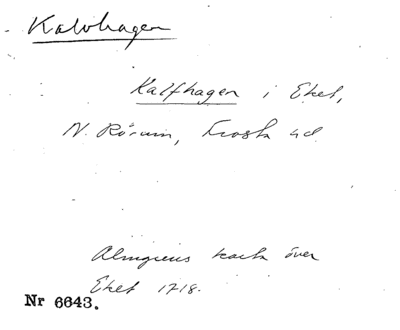 Kalvhagen
Kalfhagen i Eket,
N. Rörum, Frosta hd
Almgrens karta över
Eket 1718.
Nr 6643.